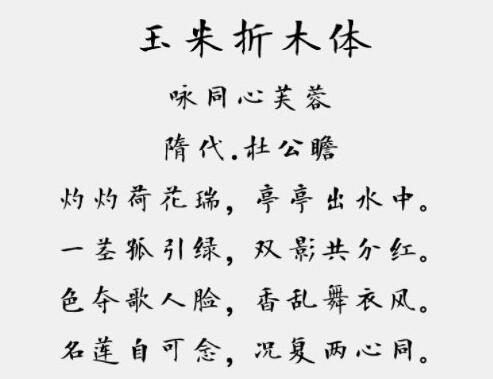 玉米折木体
咏同心芙蓉
隋代.杜公瞻
灼灼荷花瑞，亭亭出水中。
一茎孤引绿，双影共分红。
色夺歌人脸，香乱舞衣风。
名莲自可念，况复两心同。